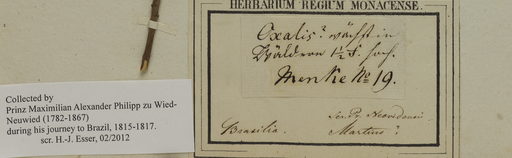 HERBARIUM REGIUM MONACENSE.
Oxalis? wächst in
Wäldern 1½ F. hoch.
Menke No 19.
Brasilia.
Martius?
Collected by
Prinz Maximilian Alexander Philipp zu Wied-
Neuwied (1782-1867)
during his journey to Brazil, 1815-1817.
scr. H.-J. Esser, 02/2012